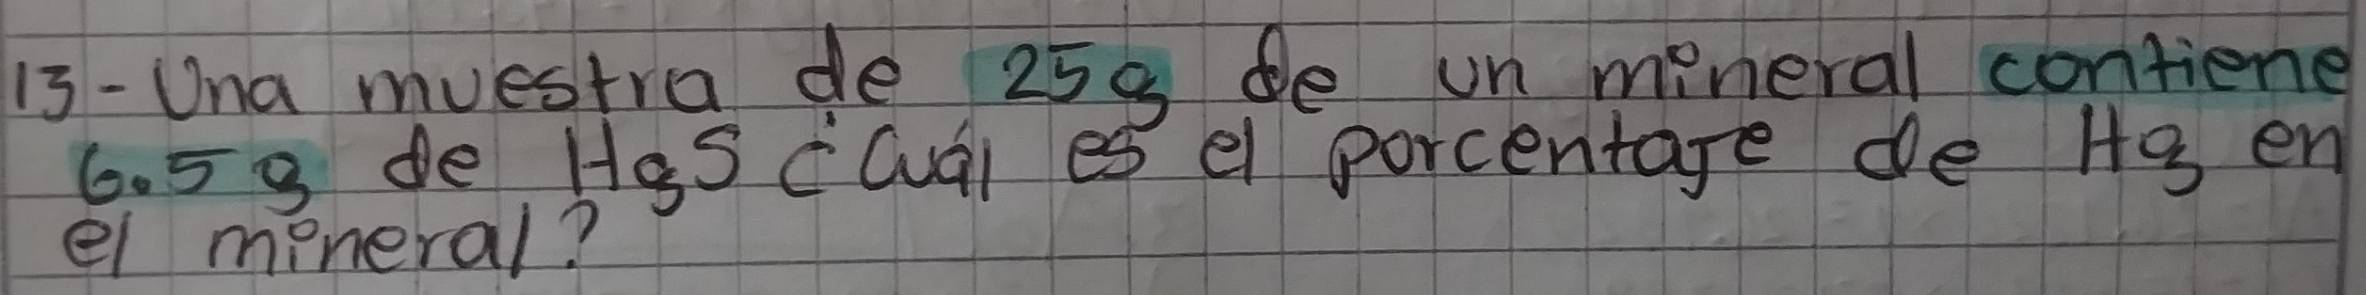 13-Una muestra de 25g de un mineral contiene
6.5g de HgS ¿Cuál es el porcentaje de Hg en
el mineral?